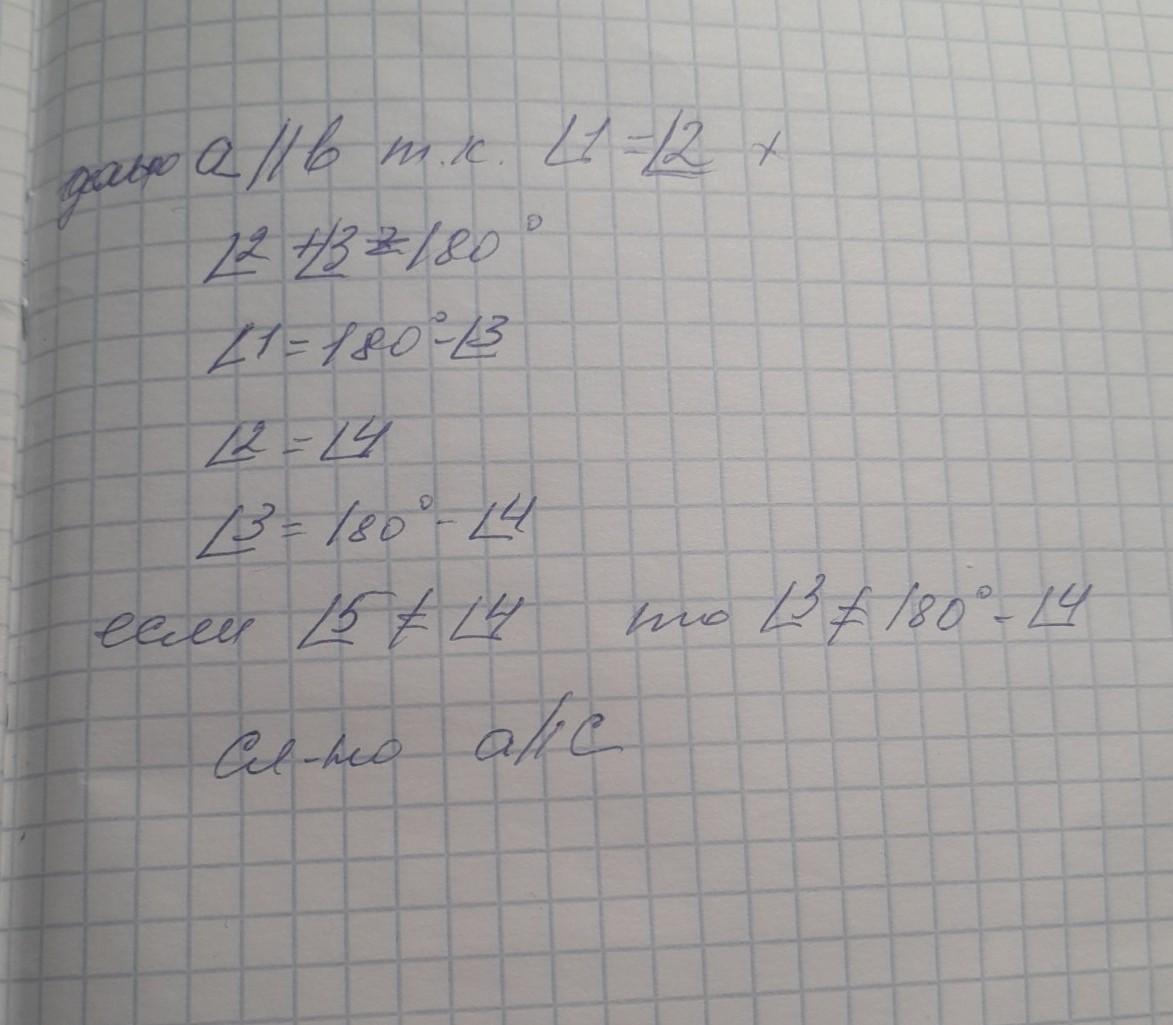 дано a || b т.к. ∠1 = ∠2 +
∠2 + ∠3 = 180°
∠1 = 180° - ∠3
∠2 = ∠4
∠3 = 180° - ∠4
если ∠5 ≠ ∠4 то ∠3 ≠ 180° - ∠4
сл-но a || c